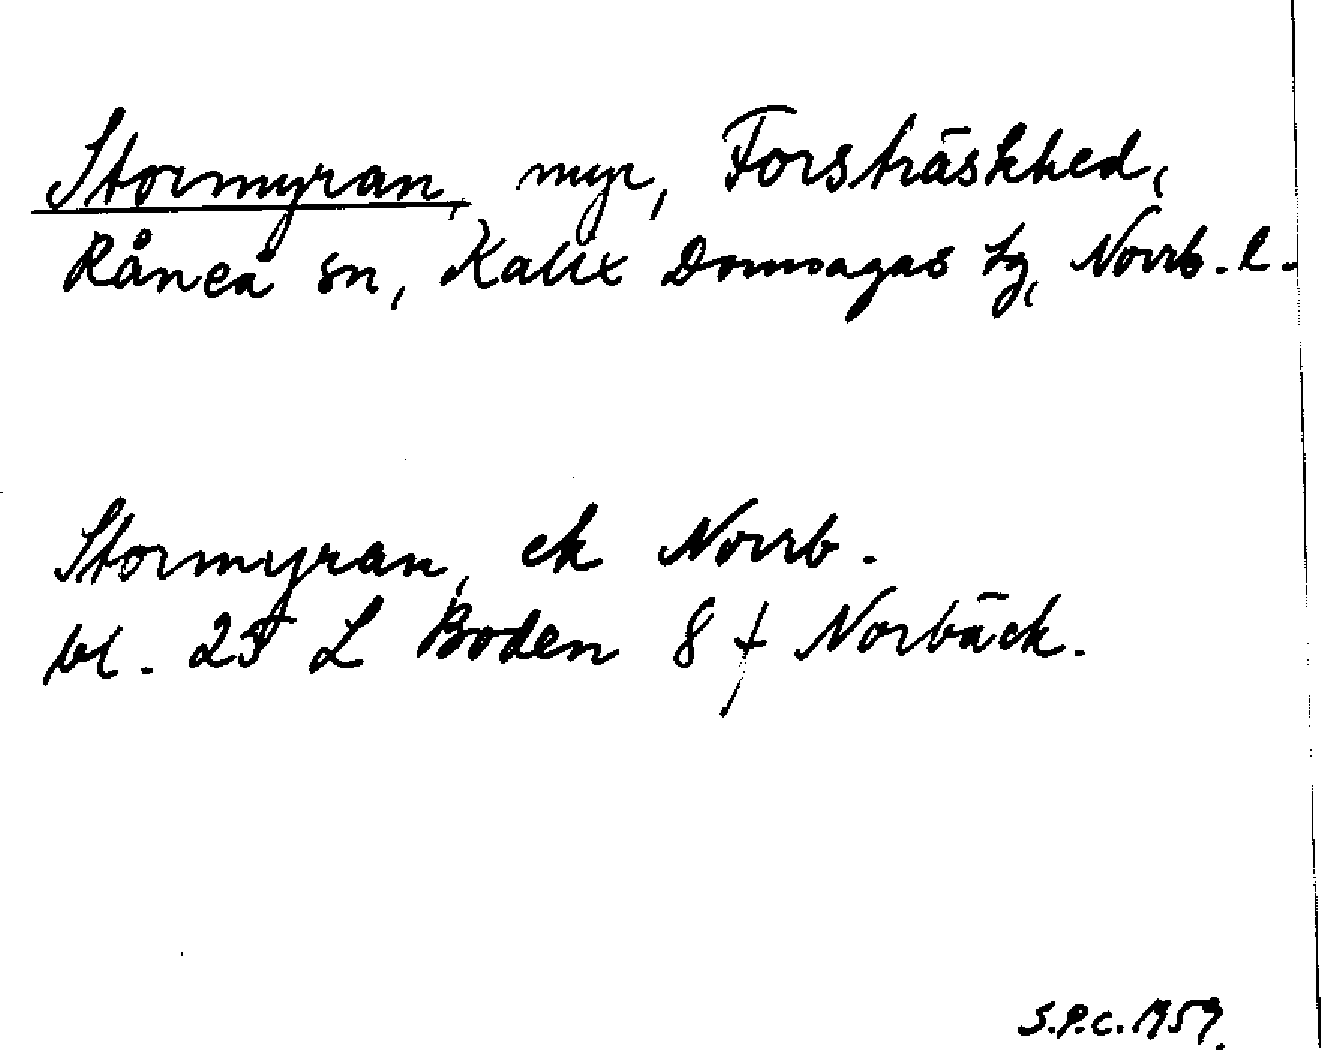 Stormyran, myr, Forsträskhed,
Råneå sn, Kalix Domsagas tg, Norrb. l.
Stormyran, ek Norrb.
bl. 25 L Boden 8 f Norbäck.
S.P.C. 1959.